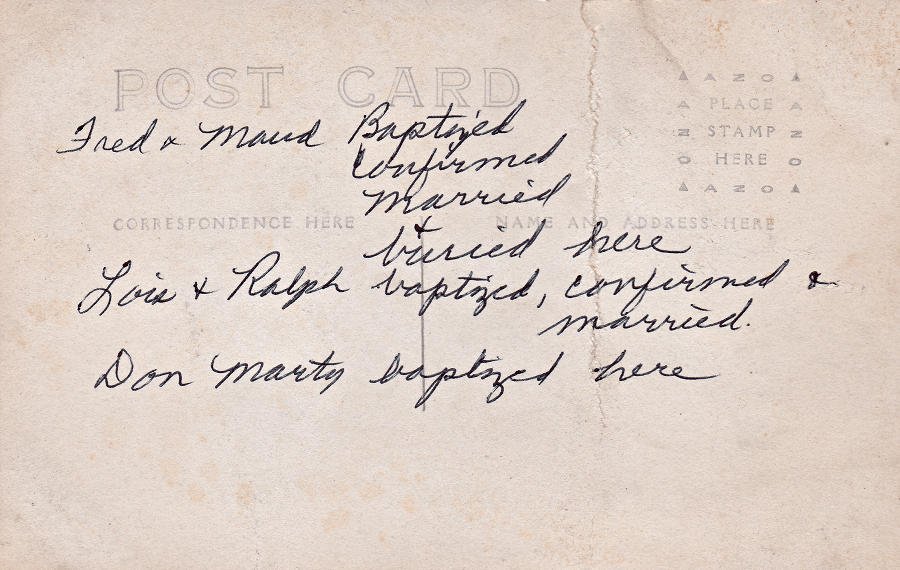 POST CARD
AZO
PLACE
STAMP
HERE
AZO
AZO
AZO
Fred & Maud Baptized
Confirmed
Married
CORRESPONDENCE HERE
NAME AND ADDRESS HERE
&
buried here
Lois & Ralph baptized, confirmed &
married.
Don Marty baptized here